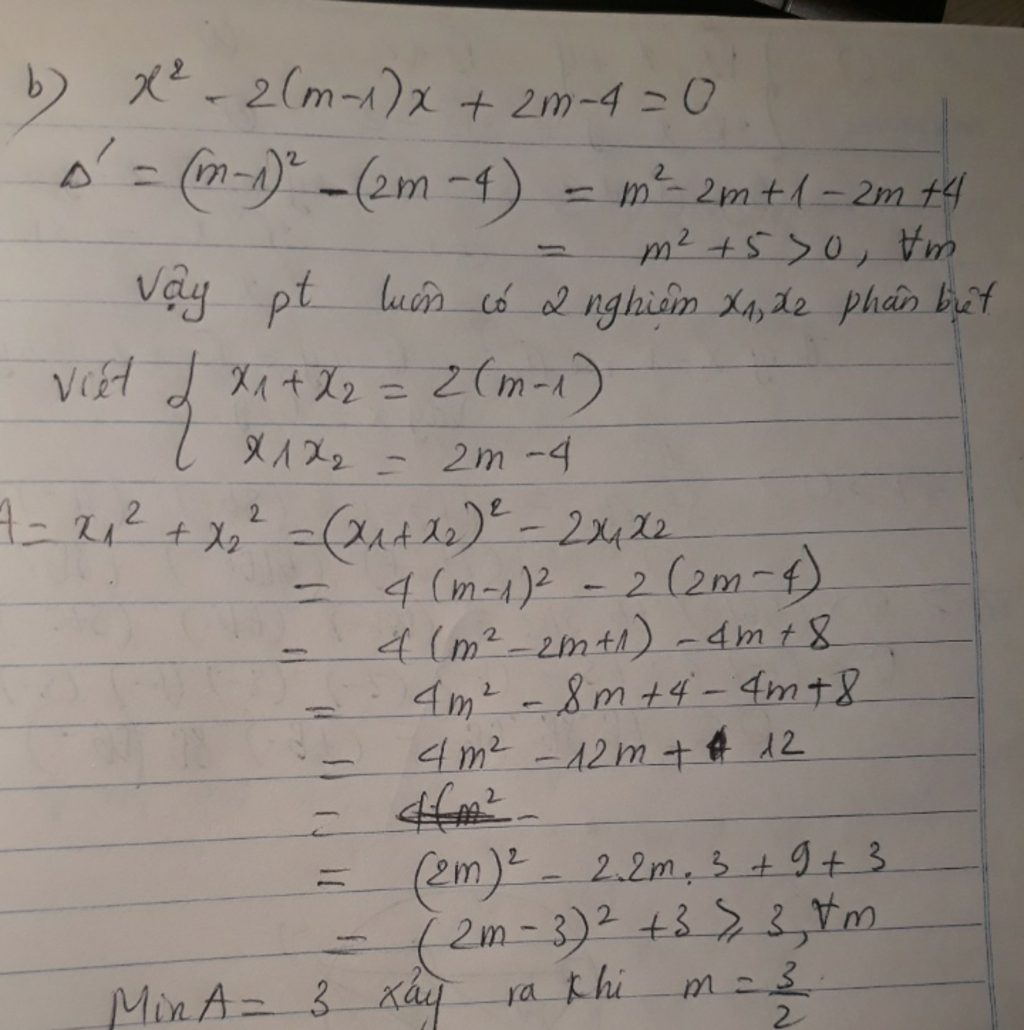 b) x² - 2(m-1)x + 2m-4 = 0
Δ' = (m-1)² - (2m-4) = m²-2m+1-2m+4
= m²+5 > 0, ∀m
Vậy pt luôn có 2 nghiệm x₁,x₂ phân biệt
Viét { x₁+x₂ = 2(m-1)
x₁x₂ = 2m-4
A = x₁² + x₂² = (x₁+x₂)² - 2x₁x₂
= 4(m-1)² - 2(2m-4)
= 4(m²-2m+1) - 4m+8
= 4m² - 8m+4 - 4m+8
= 4m² - 12m + 12
= 4(m² -
= (2m)² - 2.2m.3 + 9 + 3
= (2m-3)² + 3 ⩾ 3, ∀m
Min A = 3 xảy ra khi m = 3/2